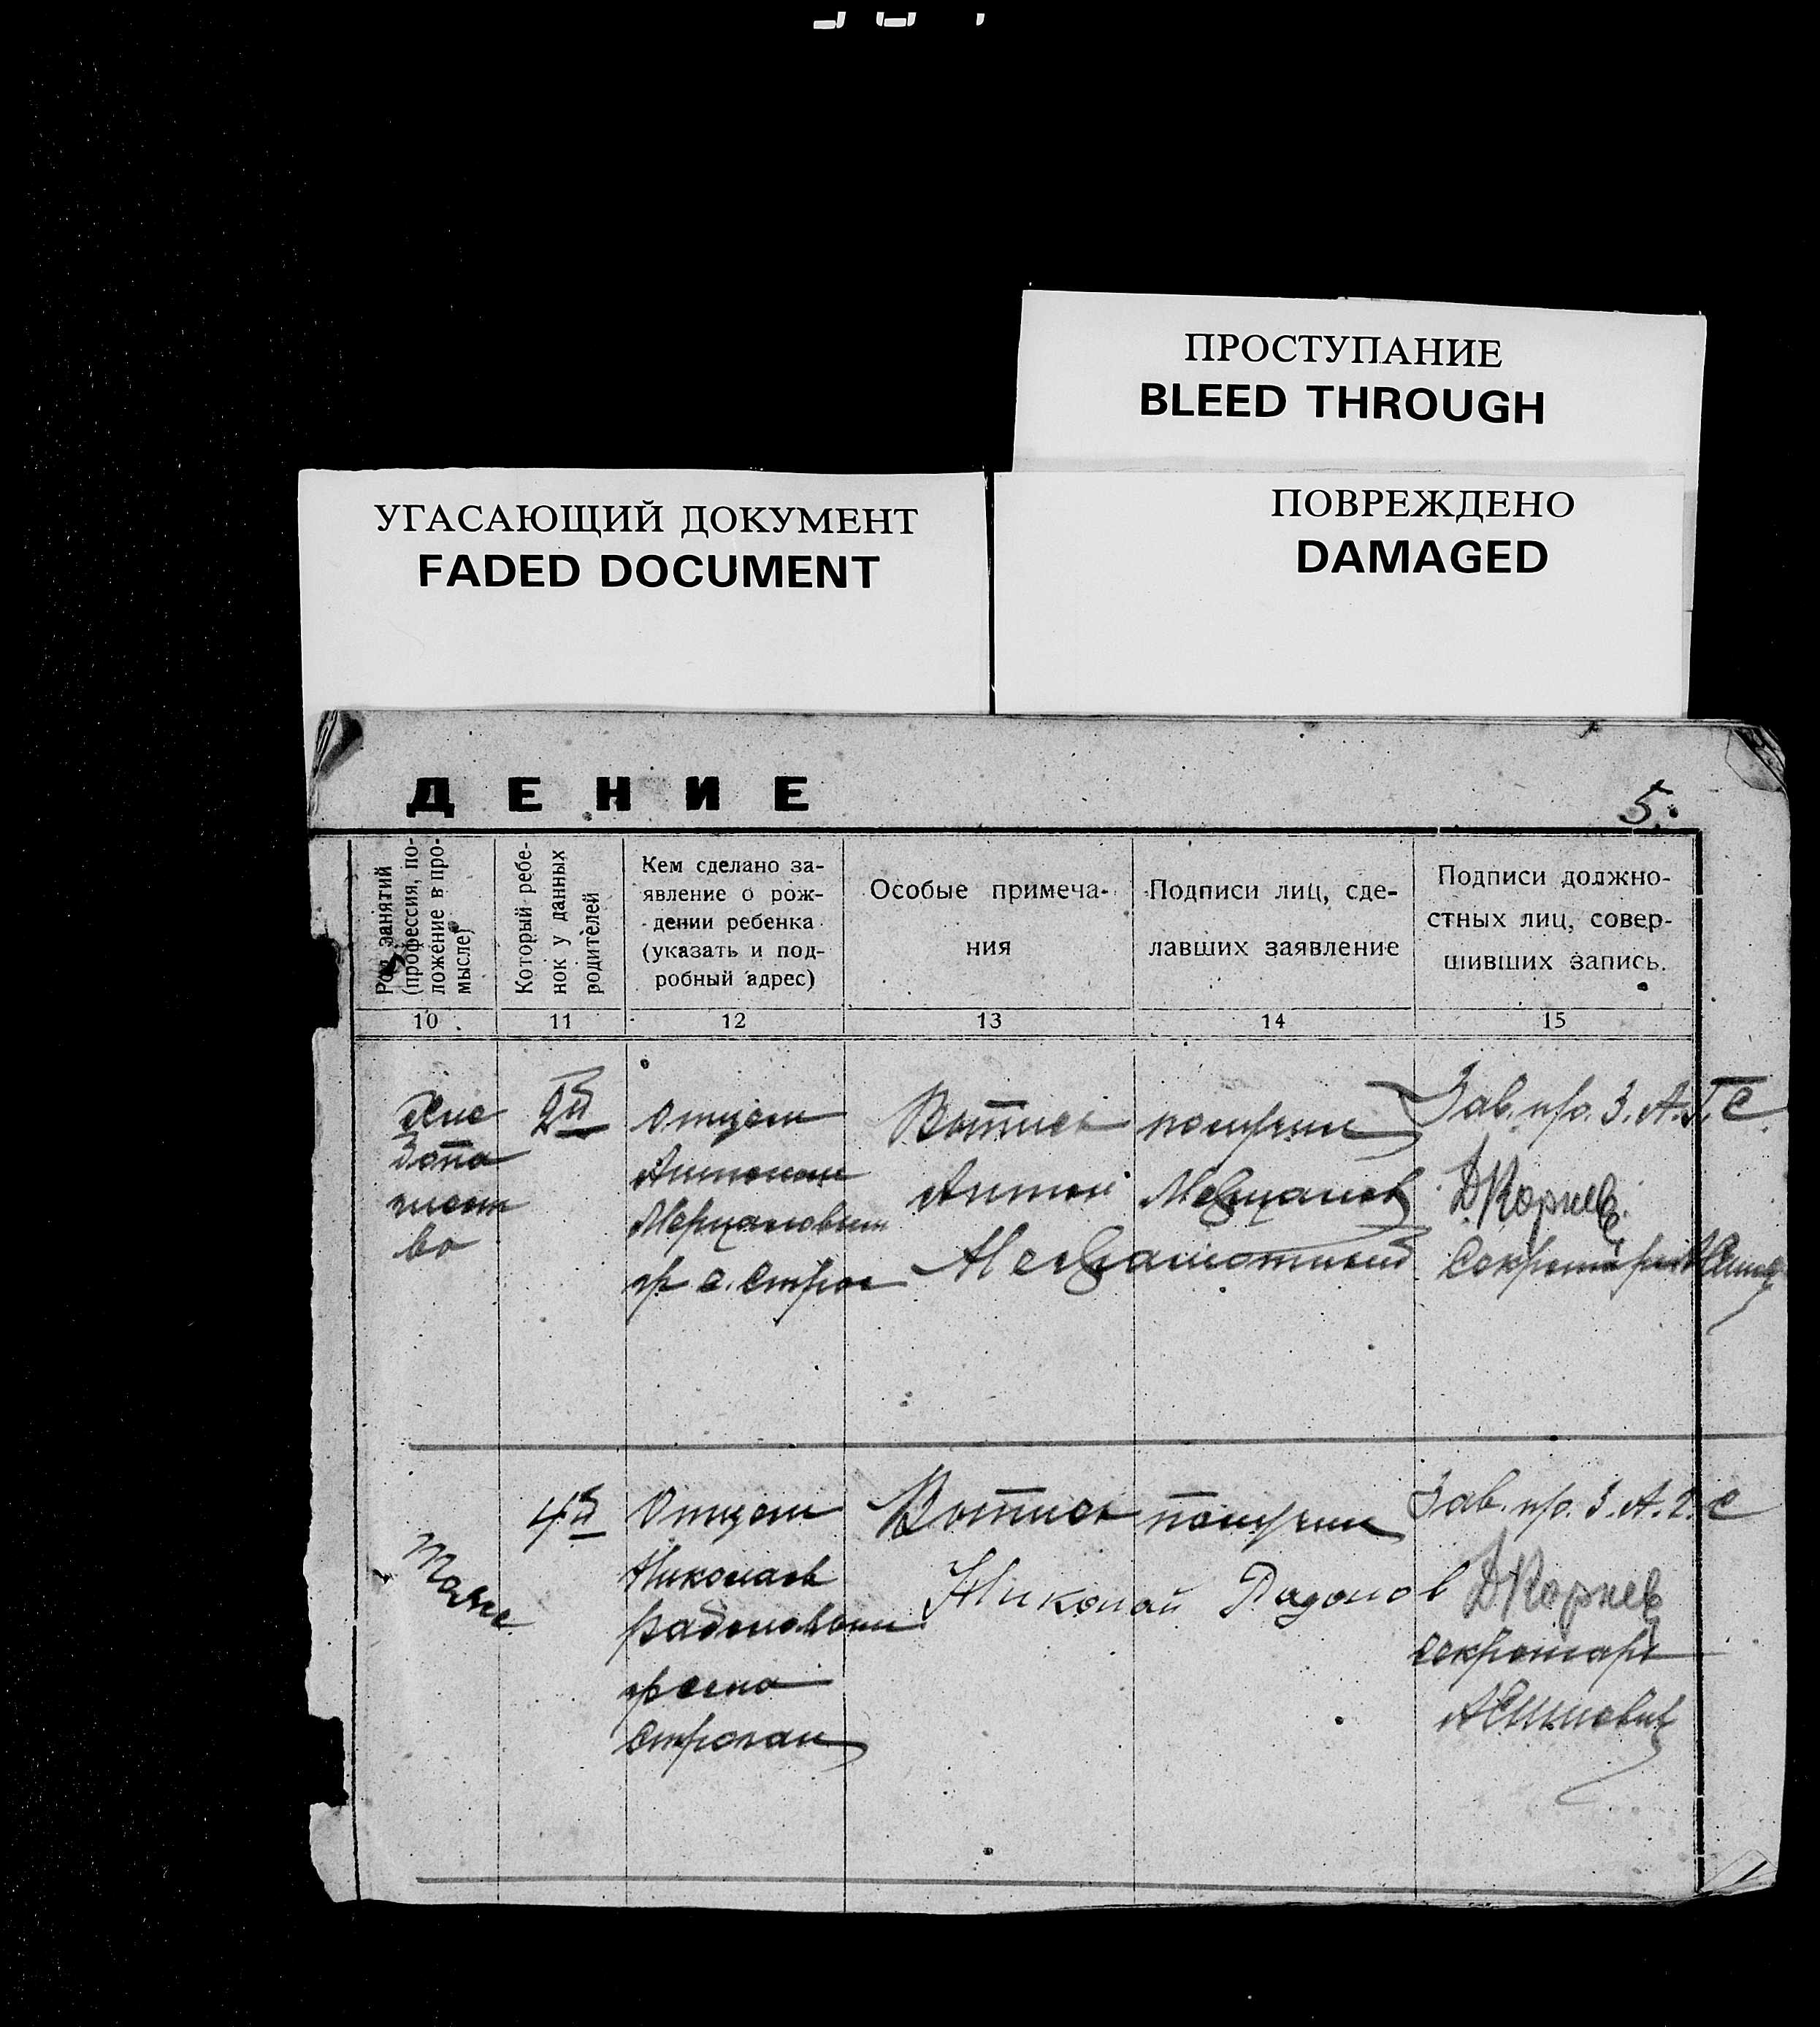 ПРОСТУПАНИЕ
BLEED THROUGH
УГАСАЮЩИЙ ДОКУМЕНТ
FADED DOCUMENT
ПОВРЕЖДЕНО
DAMAGED
ДЕНИЕ
5.
Род занятий
(профессия, по-
ложение в про-
мысле)
Который ребе-
нок у данных
родителей
Кем сделано за-
явление о рож-
дении ребенка
(указать и под-
робный адрес)
Особые примеча-
ния
Подписи лиц, сде-
лавших заявление
Подписи должно-
стных лиц, совер-
шивших запись.
10
11
12
13
14
15
Хле
бопа
шест
во
2й
Отцом
Антоном
гр. с. Строе
Выпись получил
Антон
Неграмотный
Зав. пр. З.А.Г.С
ДКорнев
Секретарь
Тоже
4й
Отцом
Николаем
Радоловым
гр села
Строган
Выпись получил
Николай Радолов
Зав. пр. З.А.Г.С
ДКорнев
Секретарь